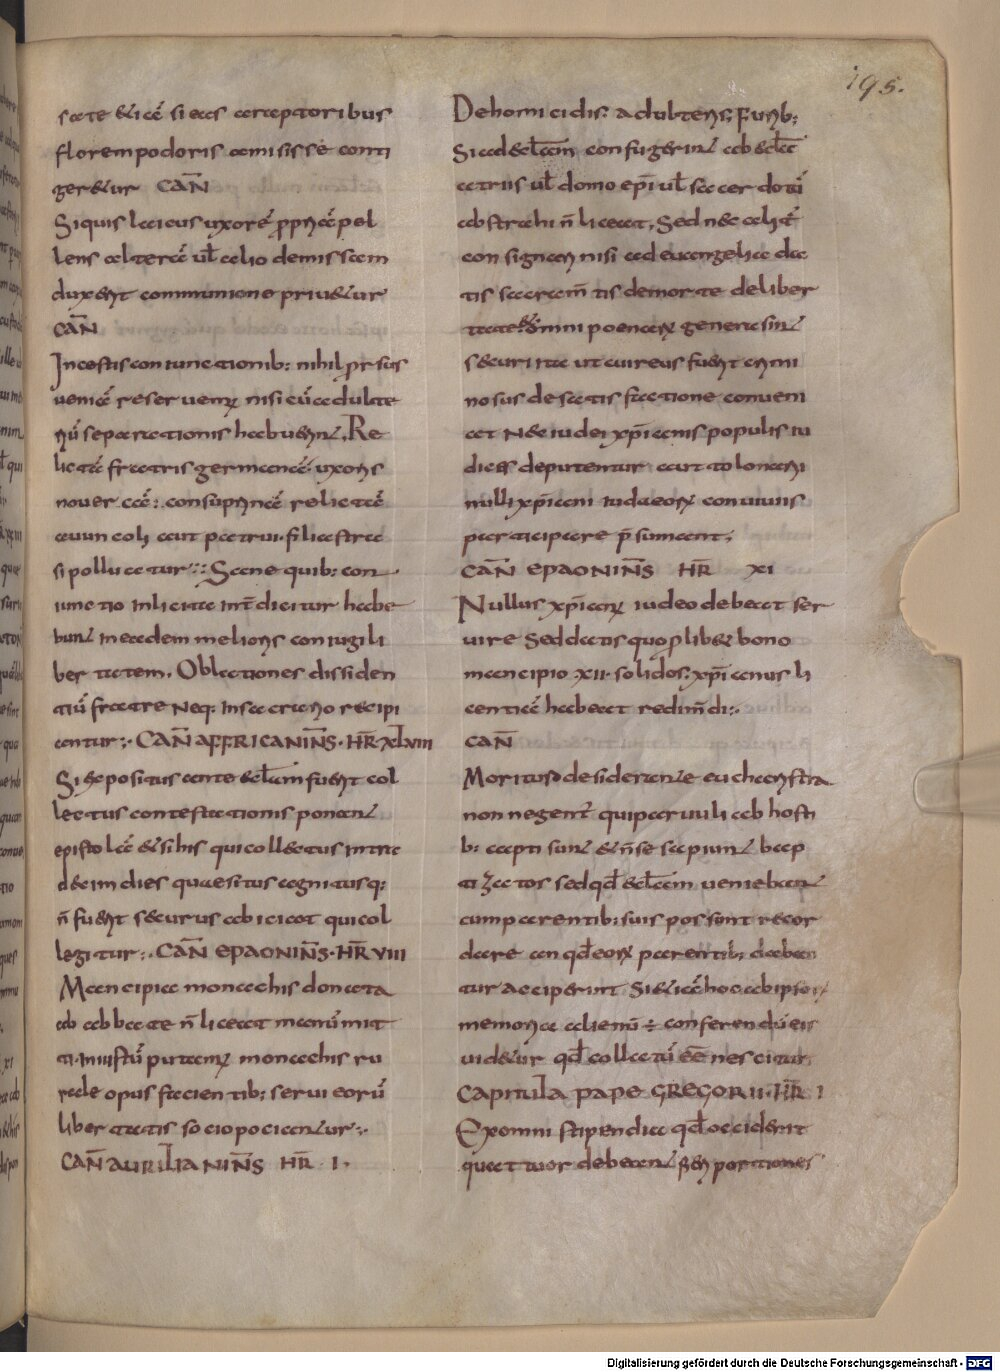 195.
sate & icē si eas acceptoribus
florem podoris amisisse conti
ger&ur CAÑ
Si quis laicus uxorē ppriā pel
lens alterā ul̄ alio demissam
duxerit communione priu&ur
CAÑ
Incestis coniunctionib: nihil prorsus
ueniae reseruem nisi cū adulte
riū separationis habuerint. Re
lictā fratris germanā uxoris
nouercā: consuprinā relictā
auunculi aut patrui. filiastra
si polluatur::· Sane quib: con
iunctio inlicita int̄dicitur habe
bunt in eadem melioris coniugii
bertatem. Oblationes dissiden
tiū fratre Neq: in sacrario recipi
antur:· CAÑ AFFRICANIÑS· HR̄ XLVIII
Si depositus ante aecl̄am fuerit col
lectus contestationis ponant
epistolā & si his qui collectus intra
decim dies quaesitus agnitusq:
n̄ fuerit securus ab eo qui col
legitur:· CAÑ EPAONIÑS· HR̄ VIII
Mancipia monachis donata
ab abbate n̄ liceat manūmit
ti· Iniustū putam monachis ru
rale opus facientib: serui eorū
libertatis socio pociantur:·
CAÑ AURILIANIÑS HR̄ I·
De homicidis: adulteris; Furib:
Si ad aecl̄am confugerint ab aecl̄ae
atriis ul̄ domo ep̄i ul̄ sacerdoti
abstrahi n̄ liceat, Sed nec alit̄
consignari nisi ad euangelia da
tis sacram̄tis de morte deliber
tate & omni poenarum genere sint
securi ita ut cui reus fuerit crimi
nosus de satisfactione conueni
at Nec iudei xp̄ianis populis iu
dices deputentur aut tolonarii
nulli xp̄iani iudaeorum conuiuiis
participare p̄sumant;
CAÑ EPAONIÑS HR̄ XI
Nullus xp̄ianum iudeo debeat ser
uire Sed datis quo p̄ libet bono
mancipio ·XII· solidos: xp̄ianus li
centiā habeat redim̄di:·
CAÑ
Morituris desiderante eucharistia
non negent̄ qui paruuli ab hosti
b: capti sunt & n̄ se sapiunt bap
tizatos sed qd̄ aecl̄am ueniebant
cum parentib: suis possint recor
dare an qd̄ eorum parentib: daba
tur acciperint Si & icē hoc ab ipsorum
memoria alienū ÷ conferendū eis
uid&ur qd̄ collatū ēē nescitur
CAPITULA PAPE GREGORII· HR̄ I
Ex omni stipendia qd̄ accidērit
quattuor debeant fieri portiones
Digitalisierung gefördert durch die Deutsche Forschungsgemeinschaft - DFG